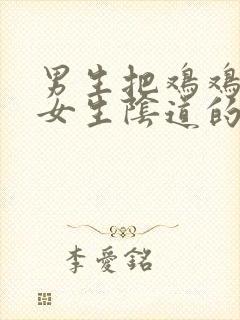 男生把鸡鸡
女生陰道的
李愛銘